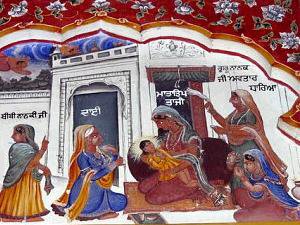 ਬੀਬੀ ਨਾਨਕੀ ਜੀ
ਦਾਈ
ਮਾਤਾ ਤ੍ਰਿਪ
ਤਾ ਜੀ
ਗੁਰੂ ਨਾਨਕ
ਜੀ ਅਵਤਾਰ
ਧਾਰਿਆ